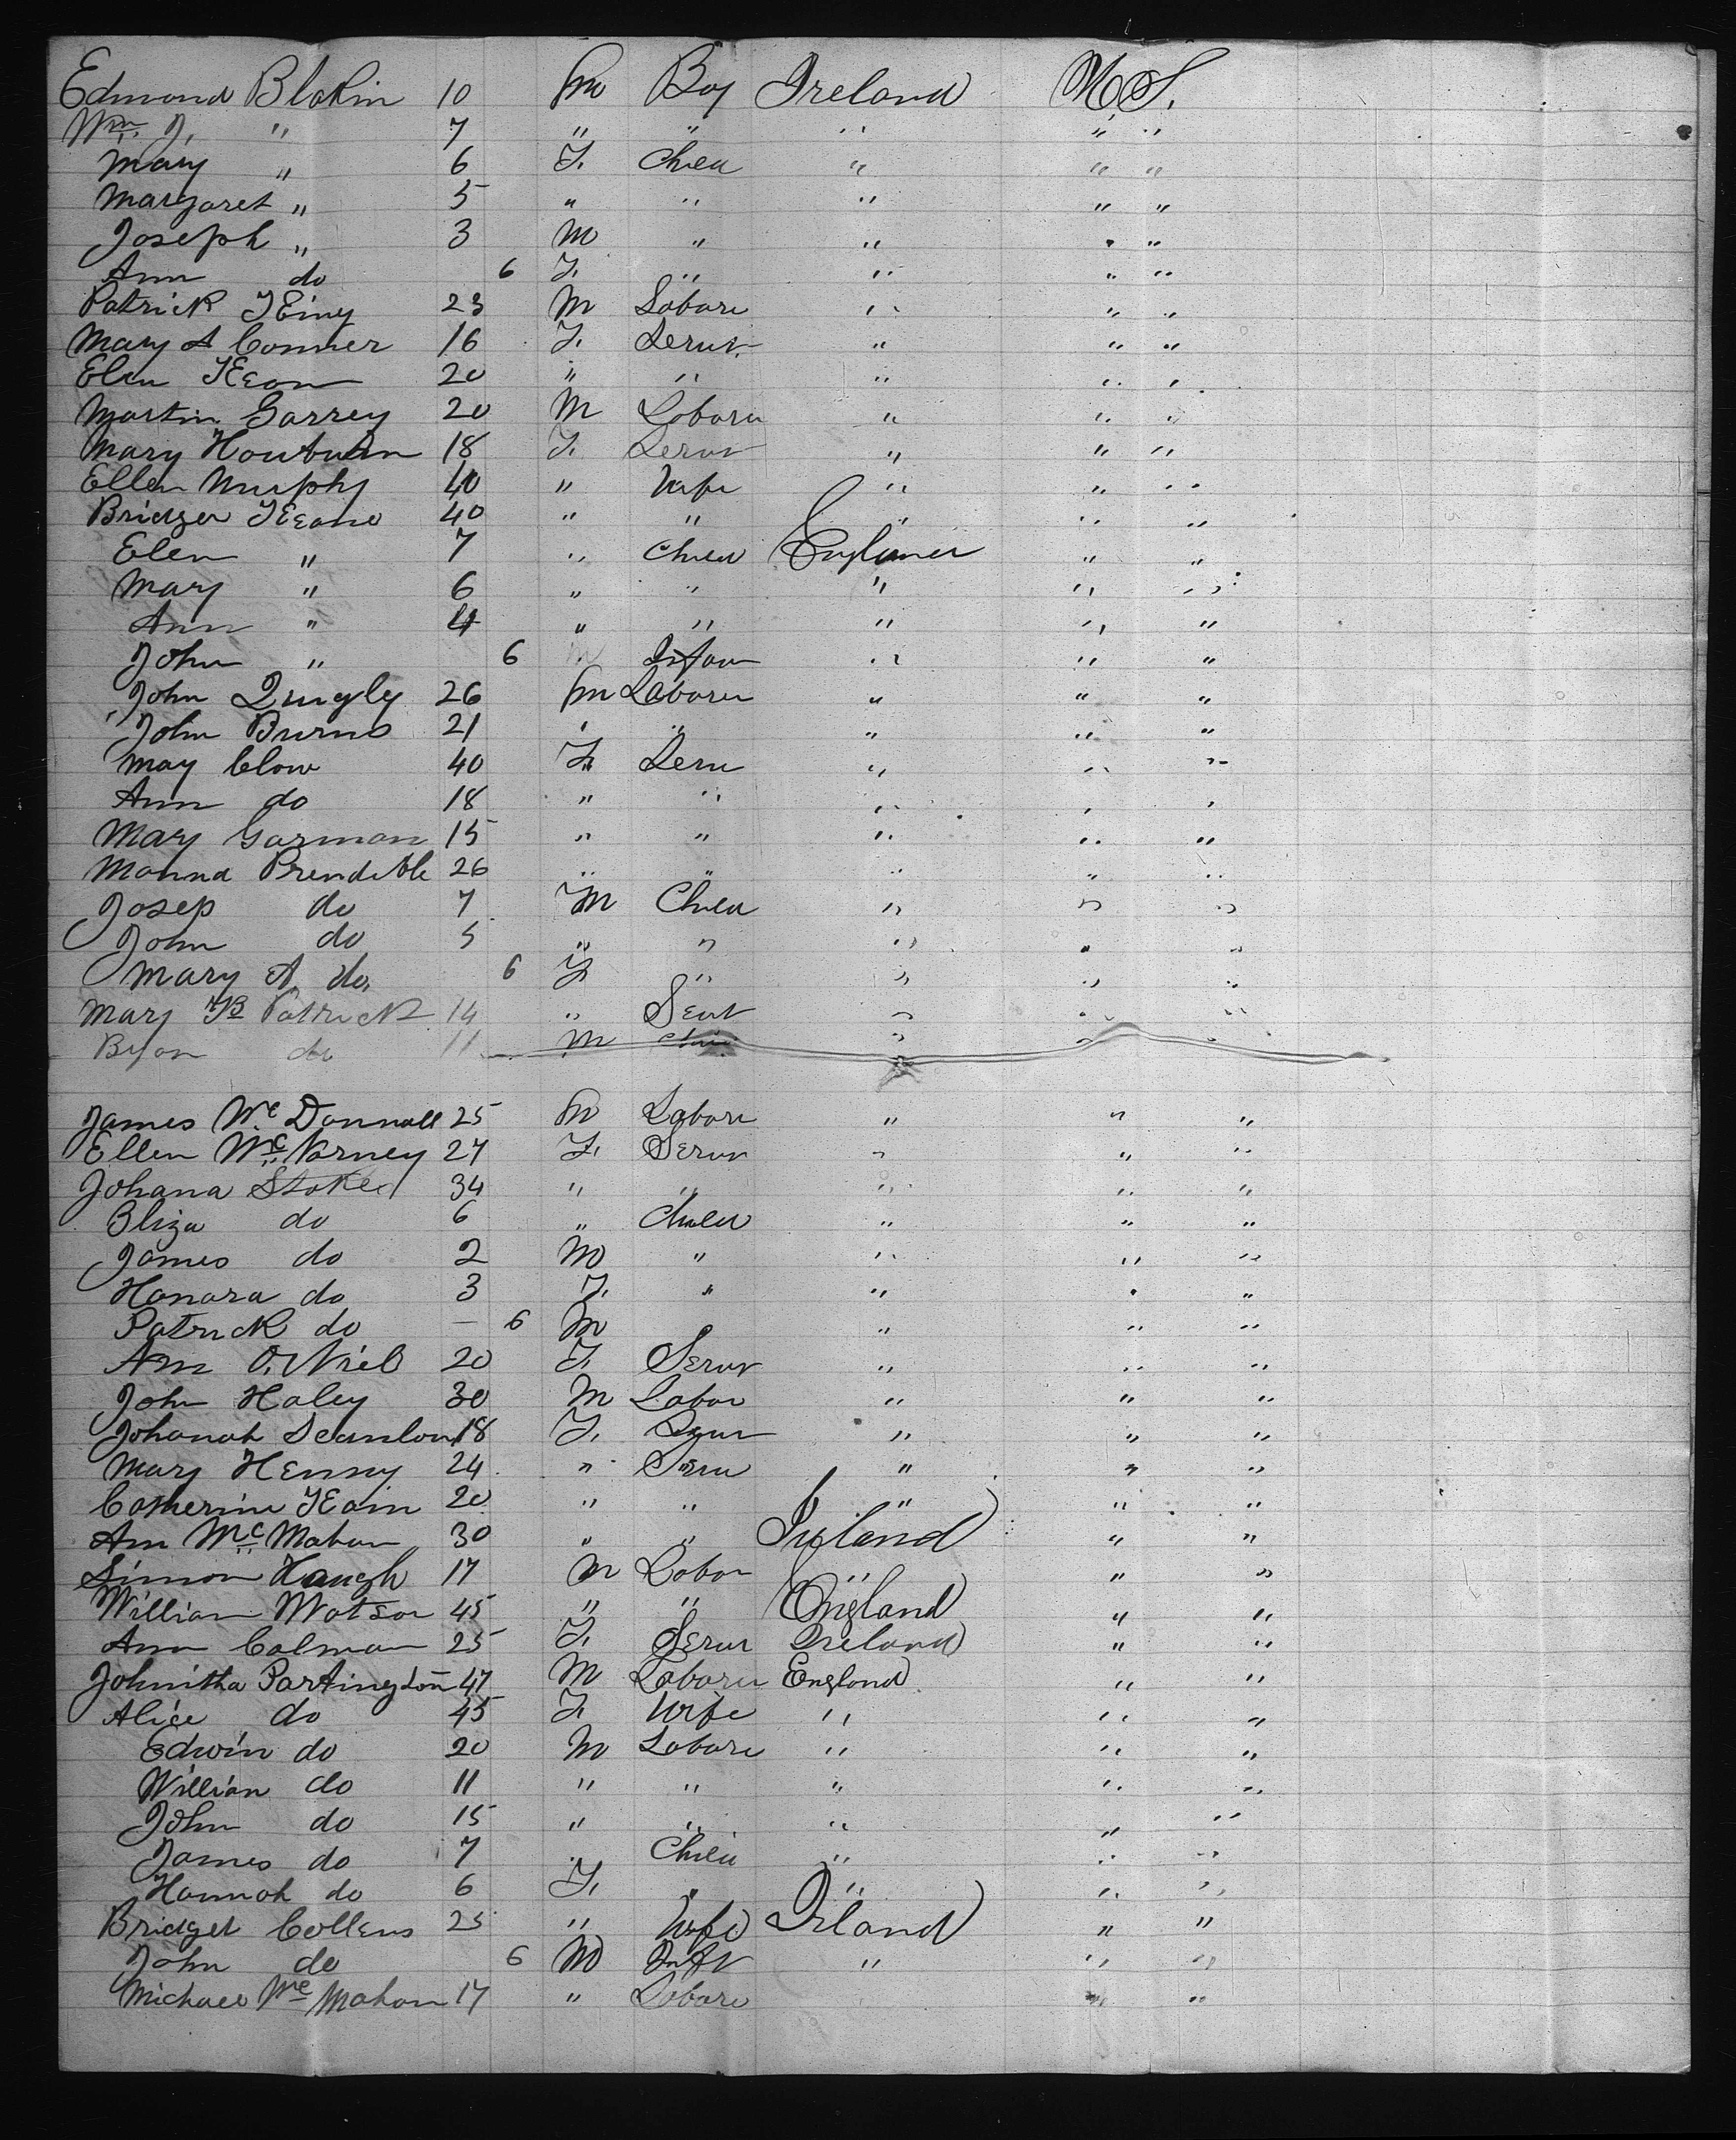 Edmond Blakin 10 m Boy Ireland U S.
Wm. J. " 7 " " " " "
Mary " 6 F. Child " " "
Margaret " 5 " " " " "
Joseph " 3 M " " " "
Ann do 6 F. " " " "
Patrick KEiny 23 M Labore " " "
Mary A Conner 16 F. Serv. " " "
Elen KEean 20 " " " " "
Martin Garrey 20 M Laborer " " "
Mary 18 F. Serv " " "
Ellen Murphy 40 " Wife " " "
Bridget KEeane 40 " " " " "
Elen " 7 " Child England " "
Mary " 6 " " " " "
Ann " 4 " " " " "
John " 6 M Infan " " "
John Quigly 26 M Laborer " " "
John Burns 21 " " " " "
May Clow 40 F. Serv " " "
Ann do 18 " " " " "
Mary Garman 15 " " " " "
Prendible 26 " " " " "
Josep do 7 M Child " " "
John do 5 " " " " "
Mary A. do. 6 F " " " "
Mary Patrick 14 " Sevt " " "
Byan do 11 M Chi " " "
James Mc Donnall 25 M Labore " " "
Ellen Mc Varney 27 F. Serv " " "
Johana Stokes 34 " " " " "
Eliza do 6 " Child " " "
James do 2 M " " " "
Hanara do 3 F. " " " "
Patrick do — 6 M " " "
Ann O. Niel 20 F. Serv " " "
John Haley 30 M Labor " " "
Johanah Scanlon 18 F. Serv " " "
Mary HEnny 24 " Serv " " "
Catherine KEain 20 " " " " "
Ann Mc Mahan 30 " " Ireland " "
Simon Haugh 17 M Labor " " "
William Watson 45 " " England " "
Ann Colman 25 F. Serv Ireland " "
Johnitha Partington 47 M Laborer England " "
Alice do 45 F. Wife " " "
Edwin do 20 M Labore " " "
Willian do 11 " " " " "
John do 15 " " " " "
James do 7 " Child " " "
Hannah do 6 F. " " " "
Bridget Collens 25 " Wife Irland " "
John do 6 M Inft " " "
Michael Mc Mahon 17 " Labore " "